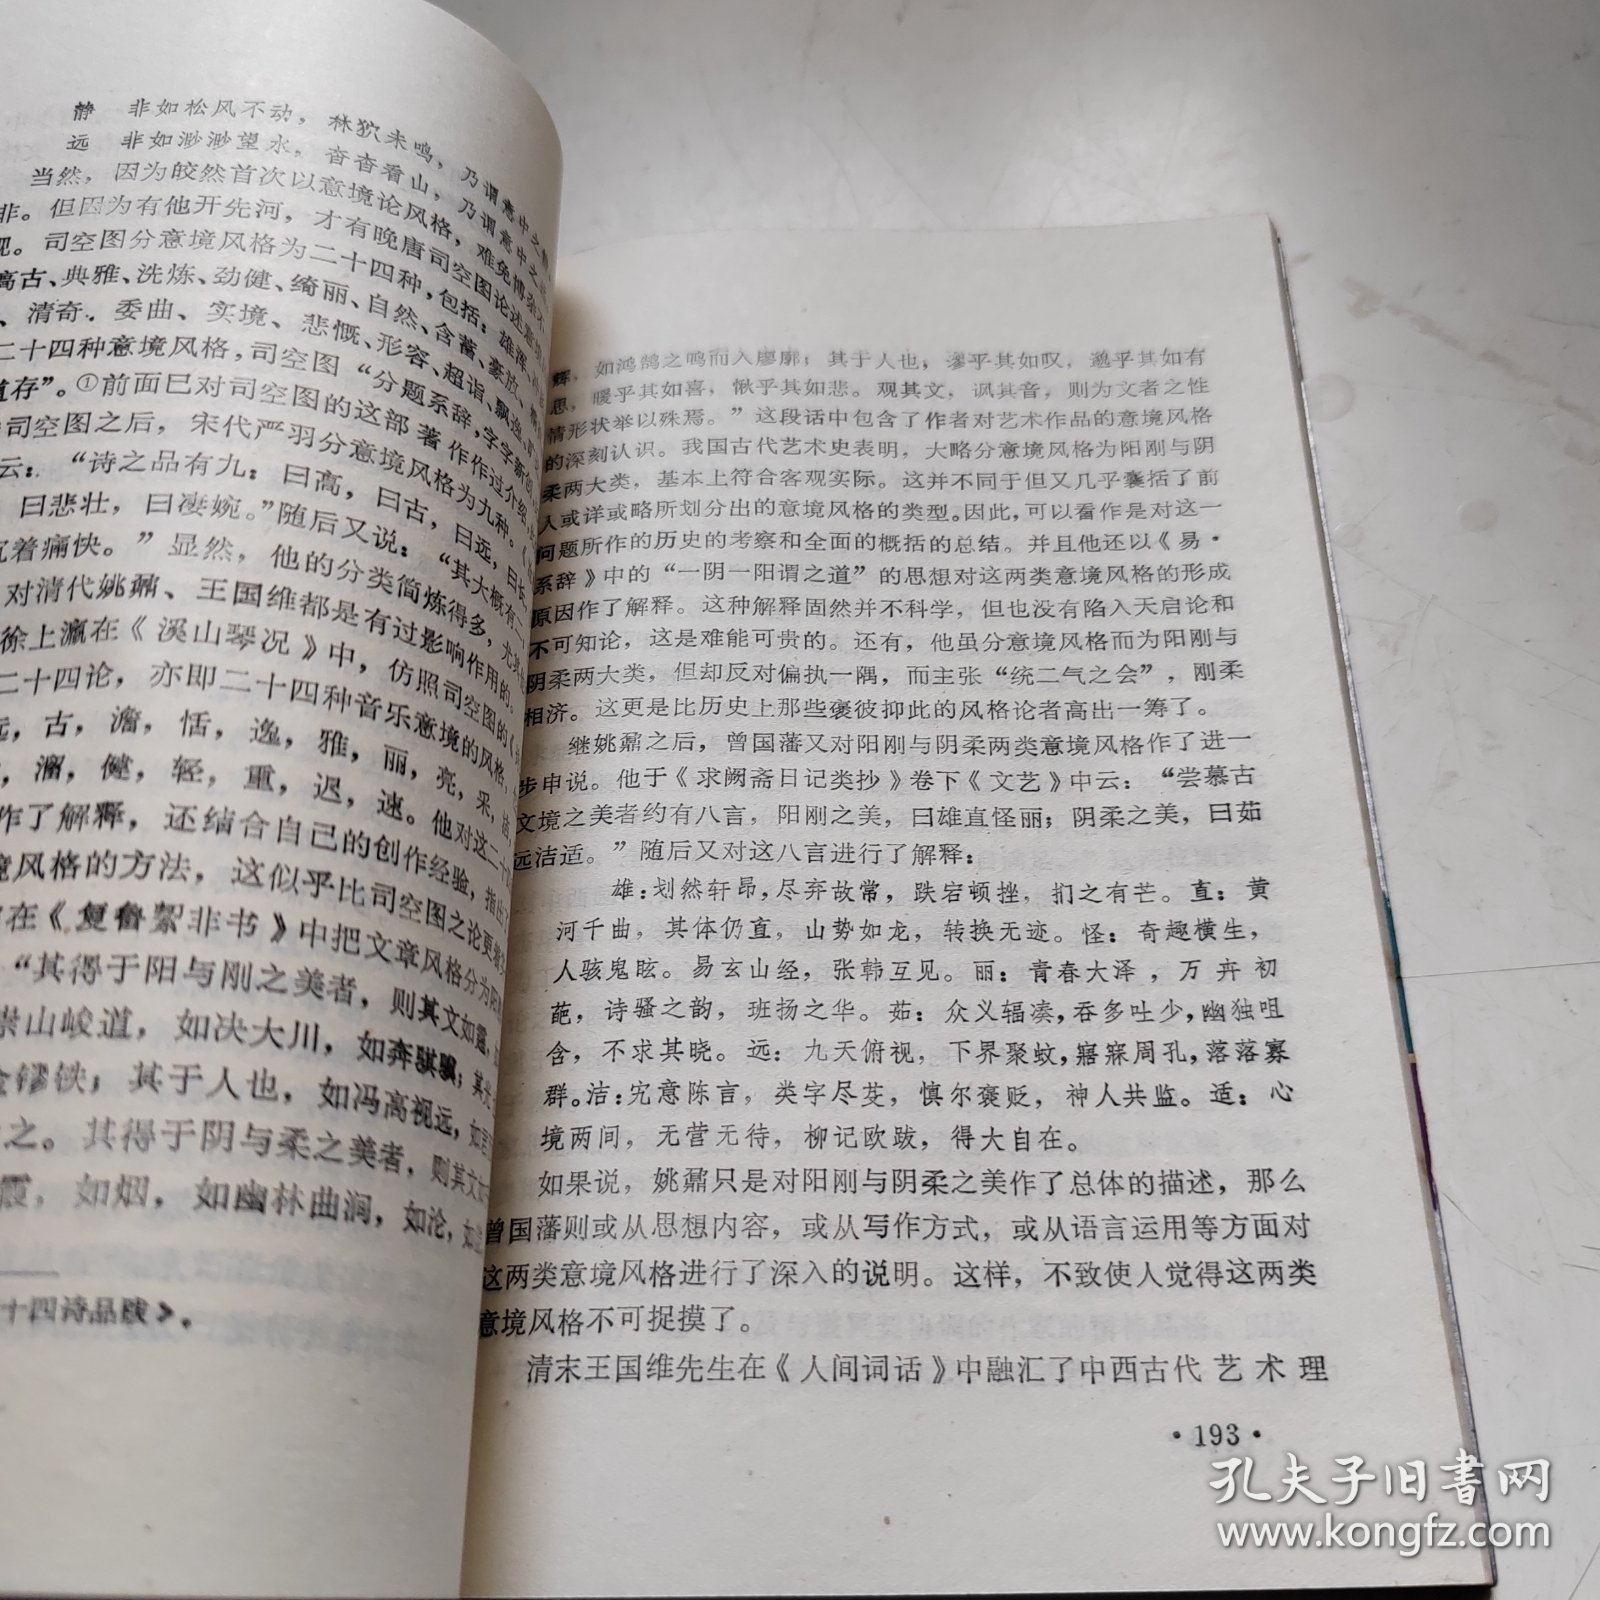 静 非如松风不动，林狖未鸣，乃谓意中之静。
远 非如渺渺望水，杳杳看山，乃谓意中之远。
当然，因为皎然首次以意境论风格，难免博杂不
非。但因为有他开先河，才有晚唐司空图论述意境
观。司空图分意境风格为二十四种，包括：雄浑、
高古、典雅、洗炼、劲健、绮丽、自然、含蓄、豪放、
、清奇、委曲、实境、悲慨、形容、超诣、飘逸、
二十四种意境风格，司空图“分题系辞，字字新创，
道存”。①前面已对司空图的这部著作作过介绍，
司空图之后，宋代严羽分意境风格为九种。
云：“诗之品有九：曰高，曰古，曰远，曰长，
曰悲壮，曰凄婉。”随后又说：“其大概有二，
沉着痛快。”显然，他的分类简炼得多，尤其
对清代姚鼐、王国维都是有过影响作用的。
徐上瀛在《溪山琴况》中，仿照司空图的
二十四论，亦即二十四种音乐意境的风格，
远，古，澹，恬，逸，雅，丽，亮，采，
，溜，健，轻，重，迟，速。他对这二十
作了解释，还结合自己的创作经验，指出了
境风格的方法，这似乎比司空图之论更
在《复鲁絜非书》中把文章风格分为阳
“其得于阳与刚之美者，则其文如霆，
崇山峻道，如决大川，如奔骐骥；其光
金镠铁；其于人也，如冯高视远，如
之。其得于阴与柔之美者，则其文如
霞，如烟，如幽林曲涧，如沦，如
十四诗品跋》。
辉，如鸿鹄之鸣而入廖廓；其于人也，漻乎其如叹，邈乎其如有
思，暖乎其如喜，愀乎其如悲。观其文，讽其音，则为文者之性
情形状举以殊焉。”这段话中包含了作者对艺术作品的意境风格
的深刻认识。我国古代艺术史表明，大略分意境风格为阳刚与阴
柔两大类，基本上符合客观实际。这并不同于但又几乎囊括了前
人或详或略所划分出的意境风格的类型。因此，可以看作是对这一
问题所作的历史的考察和全面的概括的总结。并且他还以《易·
系辞》中的“一阴一阳谓之道”的思想对这两类意境风格的形成
原因作了解释。这种解释固然并不科学，但也没有陷入天启论和
不可知论，这是难能可贵的。还有，他虽分意境风格而为阳刚与
阴柔两大类，但却反对偏执一隅，而主张“统二气之会”，刚柔
相济。这更是比历史上那些褒彼抑此的风格论者高出一筹了。
继姚鼐之后，曾国藩又对阳刚与阴柔两类意境风格作了进一
步申说。他于《求阙斋日记类抄》卷下《文艺》中云：“尝慕古
文境之美者约有八言，阳刚之美，曰雄直怪丽；阴柔之美，曰茹
远洁适。”随后又对这八言进行了解释：
雄：划然轩昂，尽弃故常，跌宕顿挫，扪之有芒。直：黄
河千曲，其体仍直，山势如龙，转换无迹。怪：奇趣横生，
人骇鬼眩。易玄山经，张韩互见。丽：青春大泽，万卉初
葩，诗骚之韵，班扬之华。茹：众义辐凑，吞多吐少，幽独咀
含，不求其晓。远：九天俯视，下界聚蚊，寤寐周孔，落落寡
群。洁：宄意陈言，类字尽芟，慎尔褒贬，神人共监。适：心
境两间，无营无待，柳记欧跋，得大自在。
如果说，姚鼐只是对阳刚与阴柔之美作了总体的描述，那么
曾国藩则或从思想内容，或从写作方式，或从语言运用等方面对
这两类意境风格进行了深入的说明。这样，不致使人觉得这两类
意境风格不可捉摸了。
清末王国维先生在《人间词话》中融汇了中西古代艺术理
·193·
孔夫子旧书网
www.kongfz.com